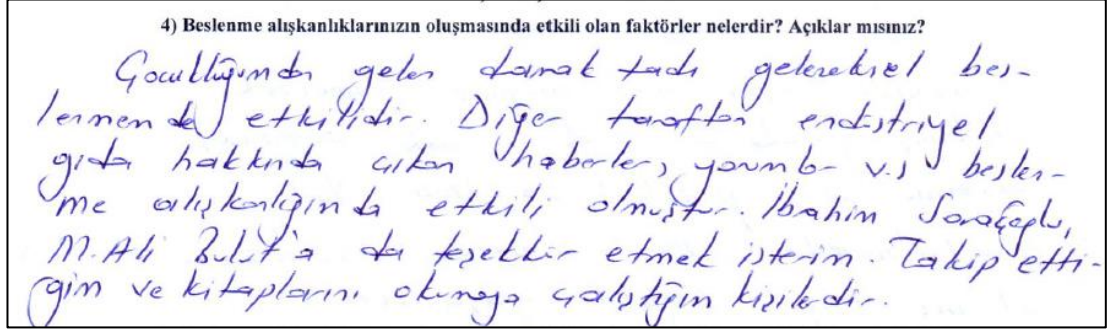 4) Beslenme alışkanlıklarınızın oluşmasında etkili olan faktörler nelerdir? Açıklar mısınız?
Çocukluğumdan gelen damak tadı geleneksel bes-
lenmemde etkilidir. Diğer taraftan endüstriyel
gıda hakkında çıkan haberler, yorumlar v.s beslen-
me alışkanlığında etkili olmuştur. İbrahim Saraçoğlu,
M. Ali Bulut'a da teşekkür etmek isterim. Takip etti-
ğim ve kitaplarını okumaya çalıştığım kişilerdir.